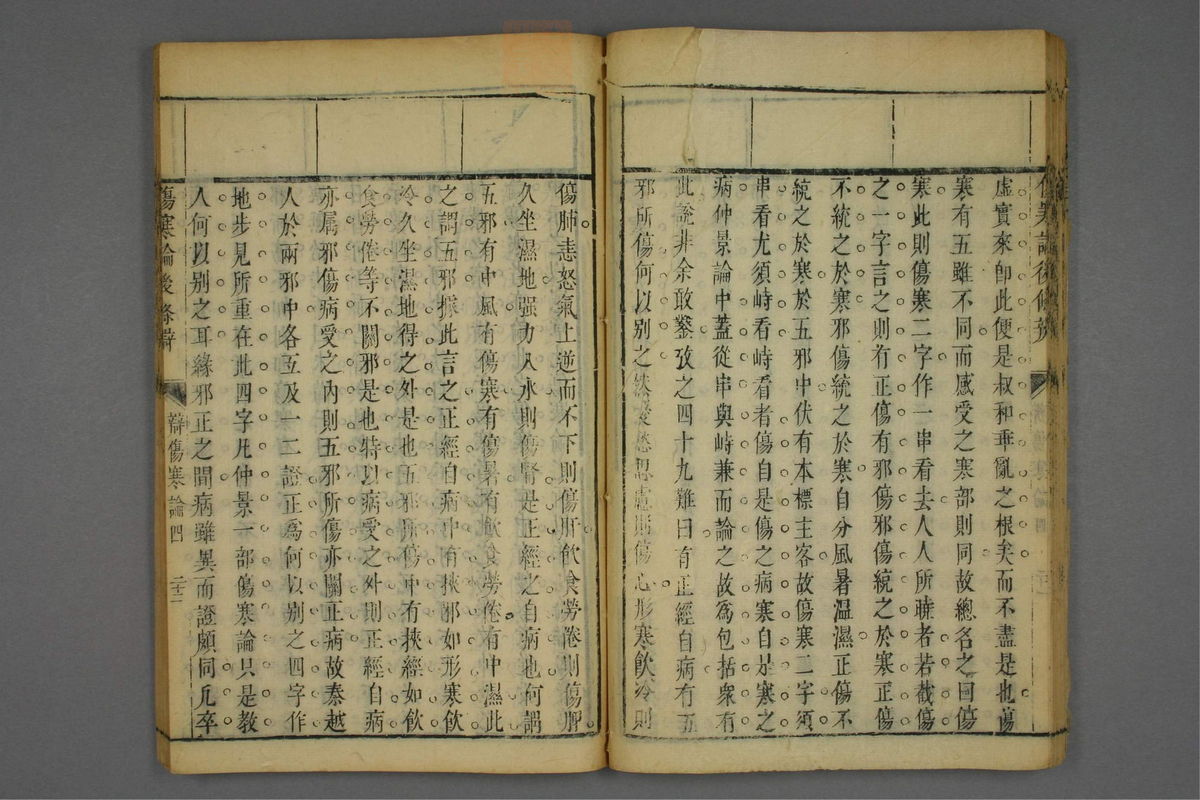 虛實來卽此便是叔和垂亂之根矣而不盡是也傷
寒有五雖不同而感受之寒部則同故總名之曰傷
寒此則傷寒二字作一串看去人人所曉者若截傷
之一字言之則有正傷有邪傷邪傷統之於寒正傷
不統之於寒邪傷統之於寒自分風暑温濕正傷不
統之於寒於五邪中伏有本標主客故傷寒二字須
串看尤須峙看峙看者傷自是傷之病寒自是寒之
病仲景論中蓋從串與峙兼而論之故爲包括衆有
此說非余敢鑿攷之四十九難曰有正經自病有五
邪所傷何以别之然憂愁思慮則傷心形寒飲冷則
傷肺恚怒氣上逆而不下則傷肝飲食勞倦則傷脾
久坐濕地强力入水則傷腎是正經之自病也何謂
五邪有中風有傷寒有傷暑有飲食勞倦有中濕此
之謂五邪據此言之正經自病中有挾邪如形寒飲
冷久坐濕地得之外是也五邪所傷中有挾經如飲
食勞倦等不關邪是也特以病受之外則正經自病
亦屬邪傷病受之內則五邪所傷亦關正病故秦越
人於兩邪中各互及一二證正爲何以别之四字作
地步見所重在此四字凡仲景一部傷寒論只是教
人何以别之耳緣邪正之間病雖異而證頗同凡卒
傷寒論後條辯
辯傷寒論四
二十二